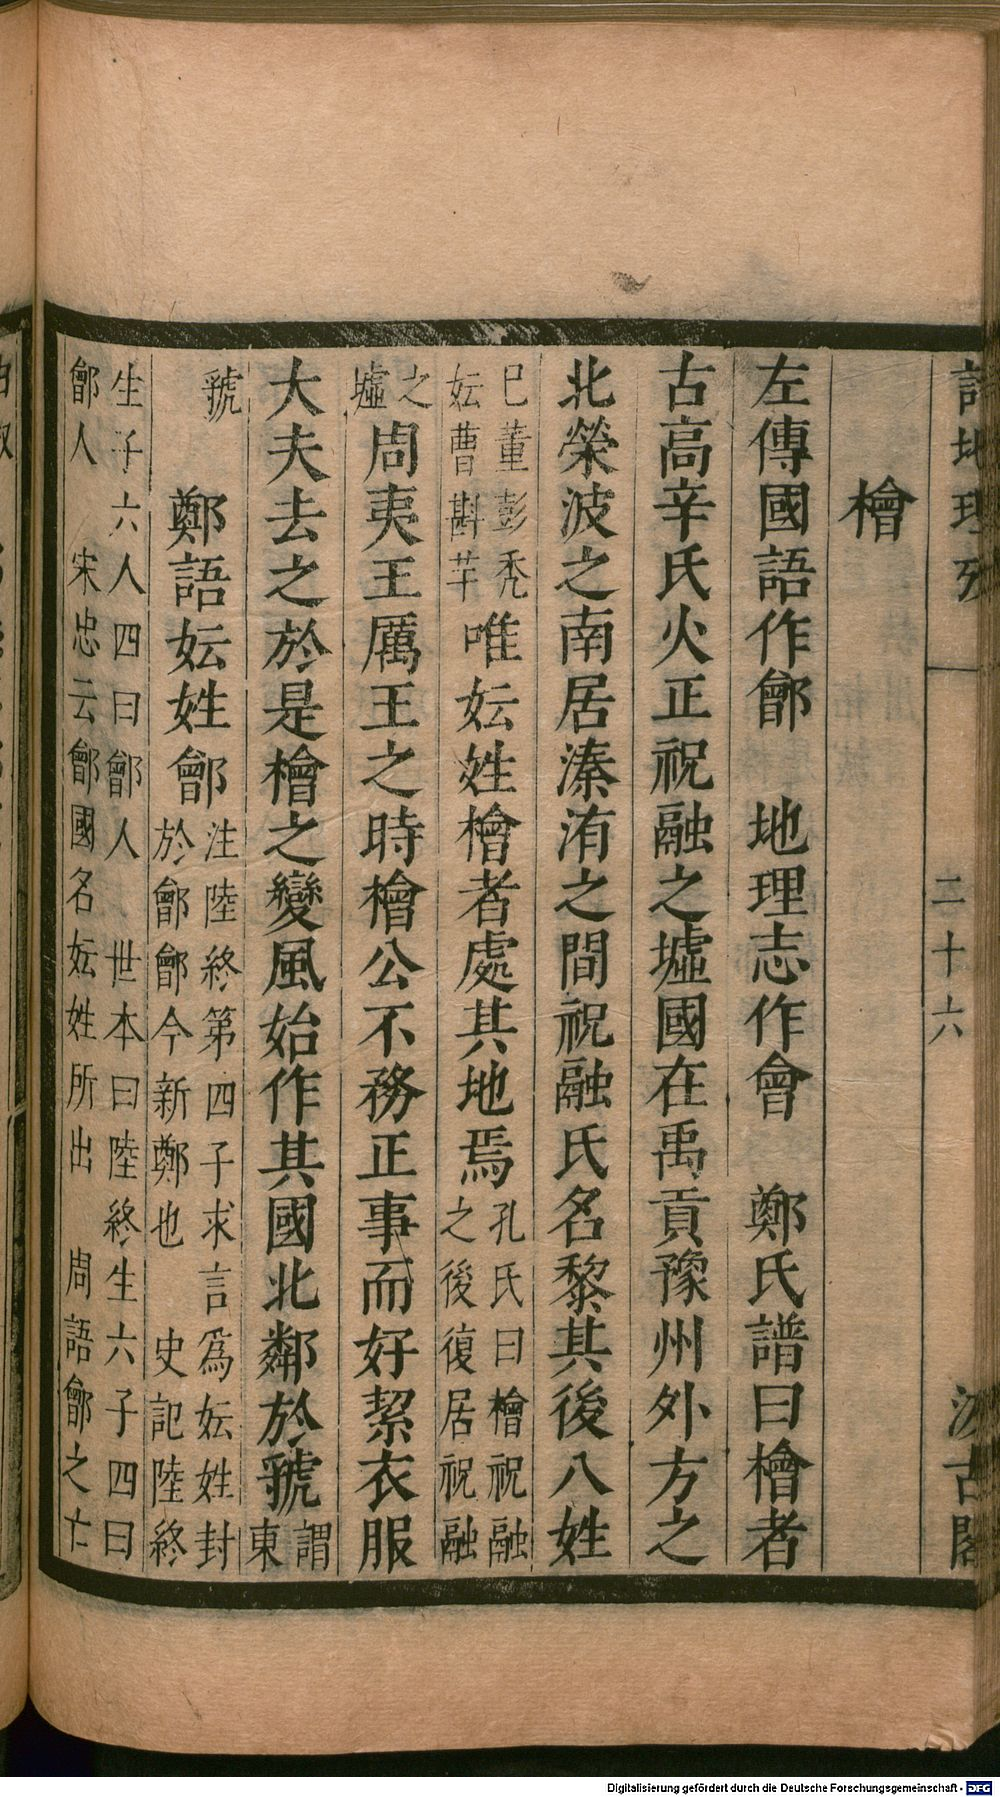 詩地理攷 二十六 汲古閣
檜
左傳國語作鄶 地理志作會 鄭氏譜曰檜者
古高辛氏火正祝融之墟國在禹貢豫州外方之
北榮波之南居溱洧之間祝融氏名黎其後八姓
巳董彭禿
妘曹斟芊
唯妘姓檜者處其地焉
孔氏曰檜祝融
之後復居祝融
之
墟
周夷王厲王之時檜公不務正事而好絜衣服
大夫去之於是檜之變風始作其國北鄰於虢
謂
東
虢
鄭語妘姓鄶
注陸終第四子求言爲妘姓封
於鄶鄶今新鄭也 史記陸終
生子六人四曰鄶人 世本曰陸終生六子四曰
鄶人 宋忠云鄶國名妘姓所出 周語鄶之亡
Digitalisierung gefördert durch die Deutsche Forschungsgemeinschaft - DFG